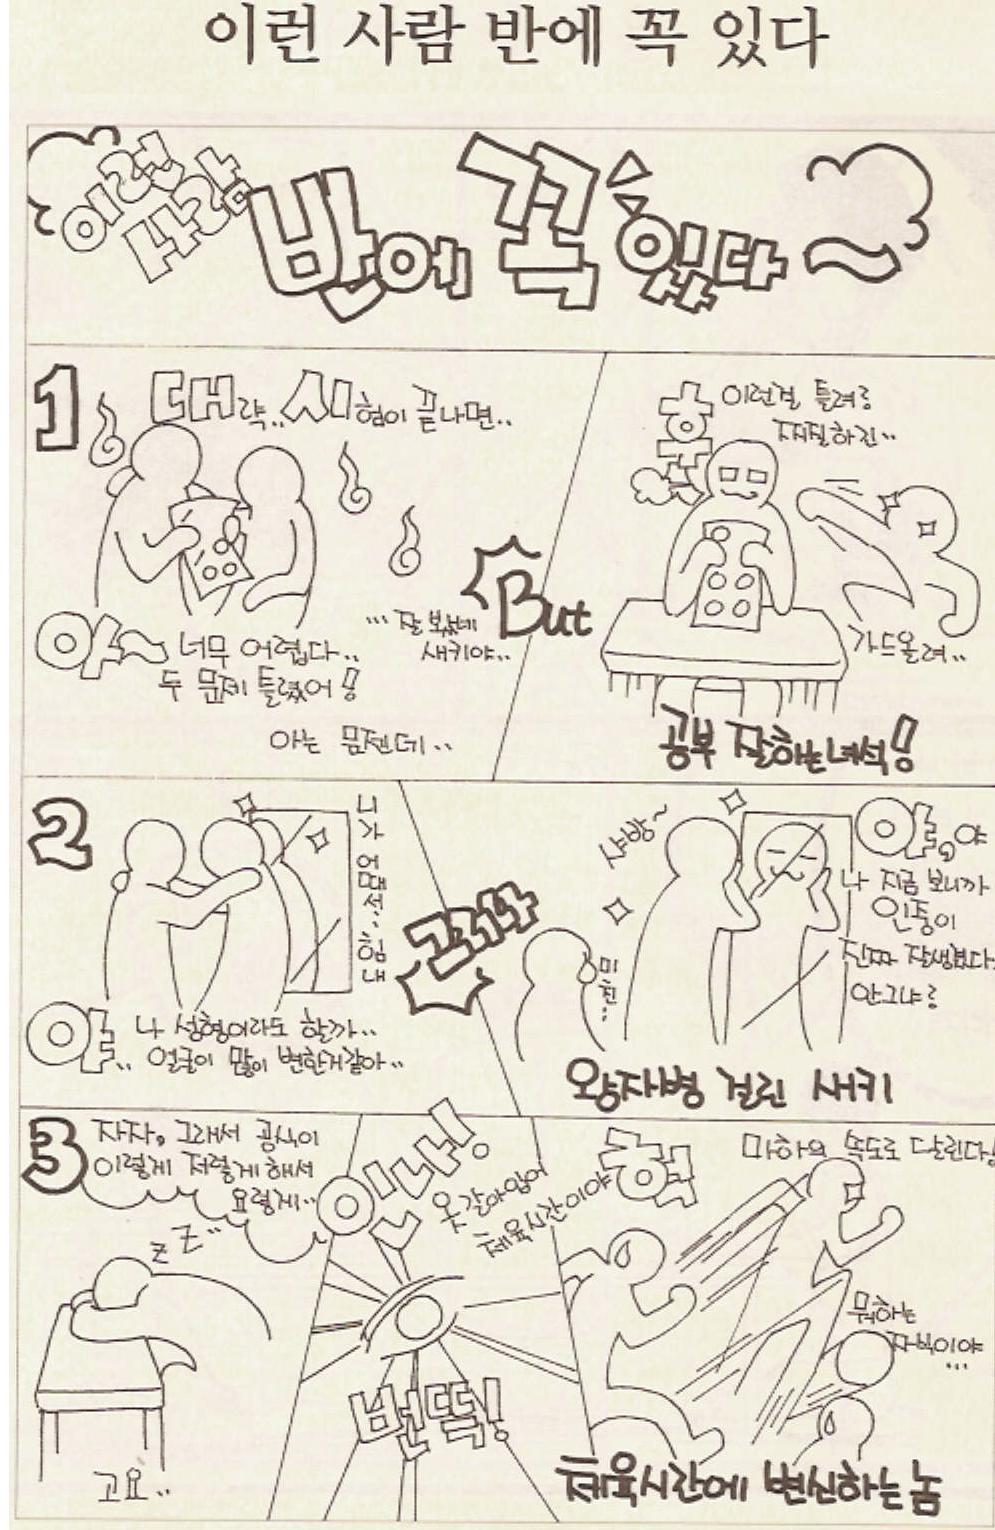 이런 사람 반에 꼭 있다
이런
사람
반에 꼭 있다~
1
대략.. 시험이 끝나면..
아~ 너무 어렵다..
두 문제 틀렸어!!
아는 문젠데..
... 잘 봤네
새키야..
But
이런걸 틀려?
찌질하긴..
가드올려..
공부 잘하는녀석!
2
니가 어때서.. 힘내
야.. 나 성형이라도 할까..
얼굴이 많이 변한거같아..
그러나
샤방~
미친...
야, 야
나 지금 보니까
인중이
진짜 잘생겼다.
안그냐?
왕자병 걸린 새키
3
자자, 그래서 공식이
이렇게 저렇게해서
요렇게..
zzz..
고요..
인나!
옷갈아입어
체육시간이야
번떡!
헉
마하의 속도로 달린다!
뭐하는
자식이야
...
체육시간에 변신하는 놈